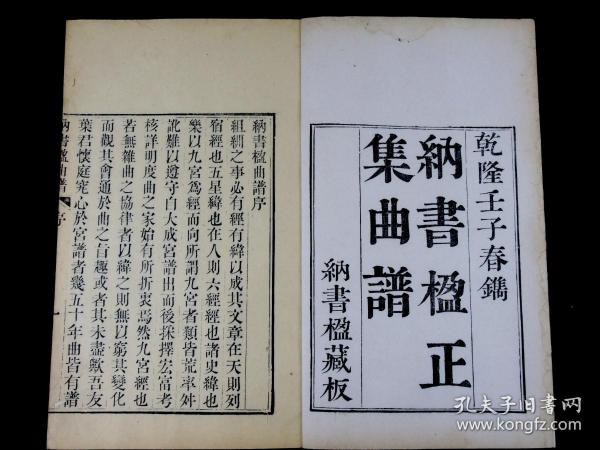 乾隆壬子春鐫
納書楹正
集曲譜
納書楹藏板
納書楹曲譜序
組紃之事必有經有緯以成其文章在天則列
宿經也五星緯也在人則六經經也諸史緯也
樂以九宮爲經而向所謂九宮者類皆荒率舛
訛難以遵守自大成宮譜出而後採擇宏富考
核詳明度曲之家始有所折衷焉然九宮經也
若無雜曲之協律者以緯之則無以窮其變化
而觀其會通於曲之旨趣或者其未盡歟吾友
葉君懷庭究心於宮譜者幾五十年曲皆有譜
納書楹曲譜 序 一
孔夫子旧书网
www.kongfz.com